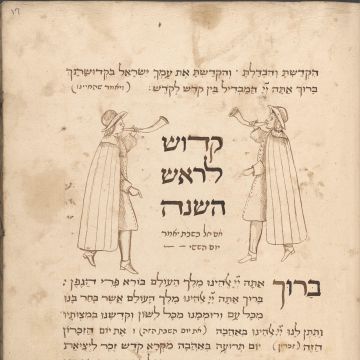 הקדשת והבדלת · והקדשת את עמך ישראל בקדושתך
ברוך אתה יי המבדיל בין קדש לקדש: (ויאמר שהחיינו)
קדוש
לראש
השנה
אם חל בשבת יאמר
יום הששי
ברוך אתה יי אלהינו מלך העולם בורא פרי הגפן:
ברוך אתה יי אלהינו מלך העולם אשר בחר בנו
מכל עם ורוממנו מכל לשון וקדשנו במצותיו
ותתן לנו יי אלהינו באהבה (את יום השבת הזה) ואת יום הזכרון
הזה (זכרון) יום תרועה באהבה מקרא קדש זכר ליציאת